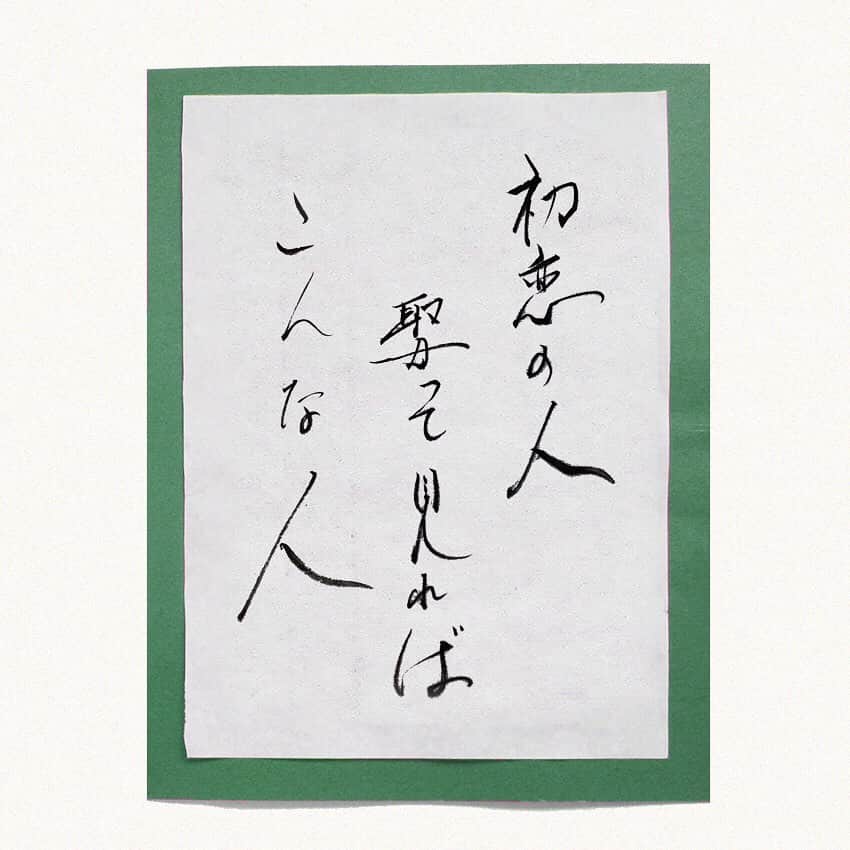 初恋の人
娶って見れば
こんな人